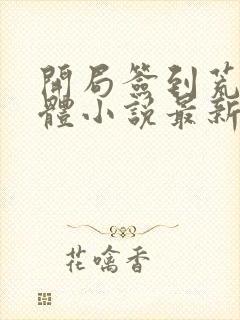 開局簽到荒
體小說最新
花噙香